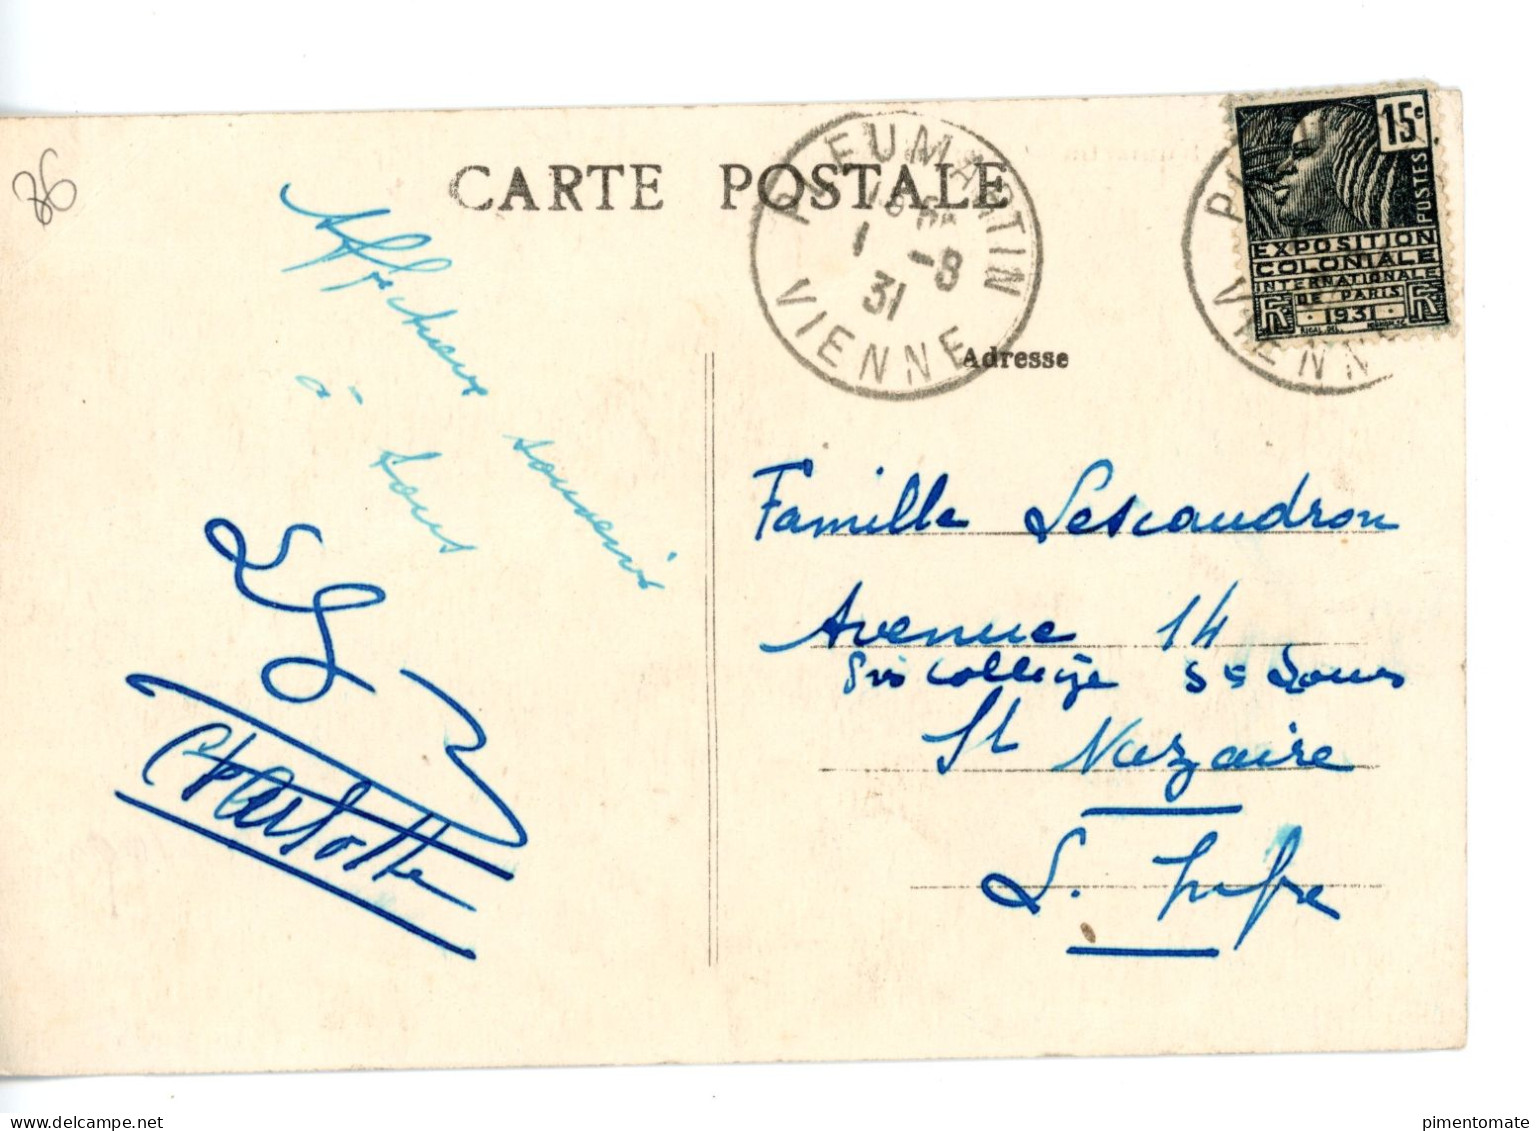 86
CARTE POSTALE
PLEUMARTIN
1 -8
31
VIENNE
15c
POSTES
EXPOSITION
COLONIALE
INTERNATIONALE
DE PARIS
RF · 1931 · RF
VIENN
Adresse
Affectueux souvenir
à tous
Charlotte
Famille Lescaudron
Avenue 14
collège St Louis
St Nazaire
L. Infre
pimentomate